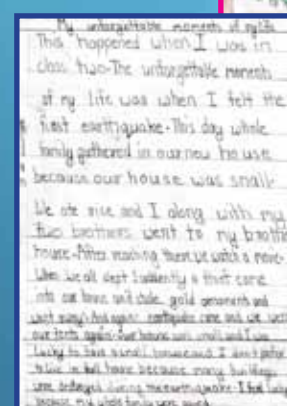 My unforgettable moments of my life
This happened when I was in
class two. The unforgettable moments
of my life was when I felt the
first earthquake. This day whole
family gathered in our new house
because our house was small.
We ate rice and I along with my
two brothers went to my brother
house. After reaching there we watch a movie.
When we all slept suddenly a thief came
into our house and stole gold ornaments and
went away. And again earthquake came and we went
our tents again. Our house was small and I was
lucky to have a small house and I don't prefer
to live in tall house because many buildings
were destroyed during the earthquake. I feel lucky
because my whole family were saved.